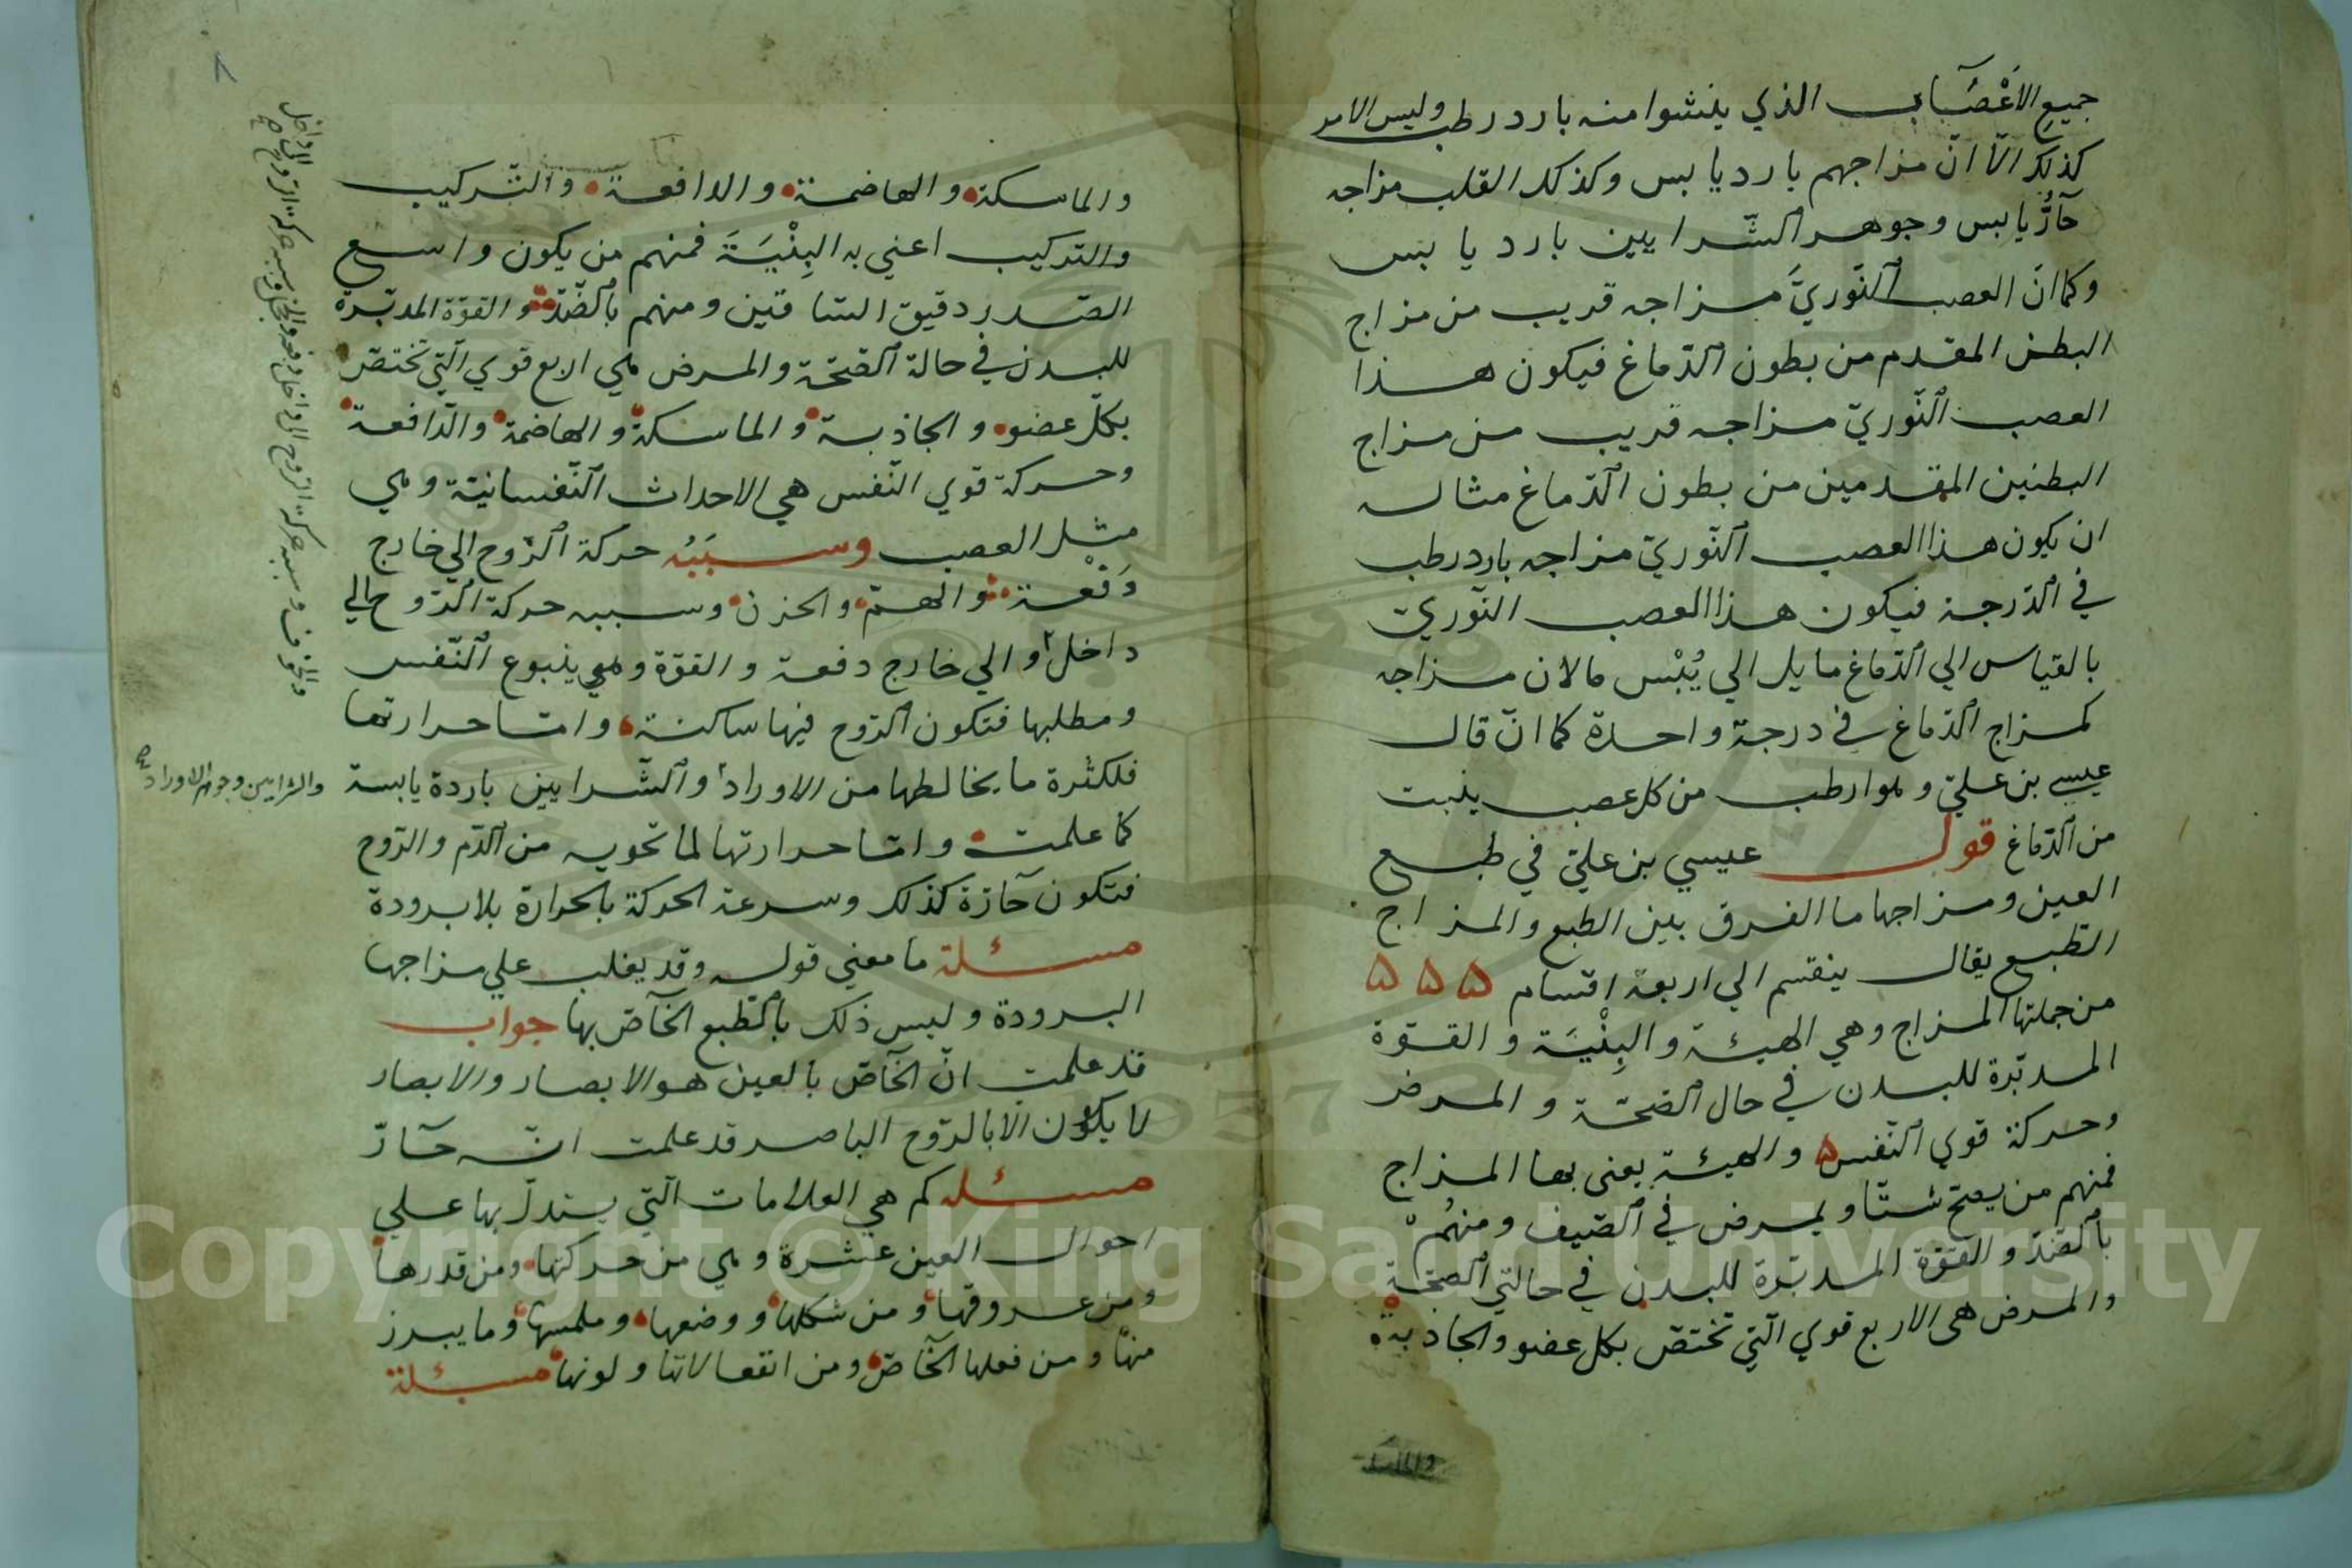 جميع الأعْصَاب الذي ينشوا منه بارد رطب وليس الامر
كذلك الّا انّ مزاجهم بارد يابس وكذلك القلب مزاجه
حآرُّ يابس وجوهر الشّرايين بارد يابس
وكما انّ العصب النّوريَّ مزاجه قريب من مزاج
البطن المقدم من بطون الدّماغ فيكون هذا
العصب النّوريّ مزاجه قريب من مزاج
البطنين المقدمين من بطون الدّماغ مثاله
ان يكون هذا العصب النّوريّ مزاجه بارد رطب
في الدّرجة فيكون هذا العصب النّوريّ
بالقياس الي الدّماغ مايل الي يُبْس مالان مزاجه
كمزاج الدّماغ في درجة واحدة كما انّ قال
عيسي بن عليّ وهو ارطب من كل عصب ينبت
من الدّماغ قول عيسي بن عليّ في طبع
العين ومزاجها ما الفرق بين الطبع والمزاج
الطّبع يقال ينقسم الي اربعة اقسام ه ه ه
من جملتها المزاج وهي الهيئة والبِنْيَة والقوّة
المدبّرة للبدن في حال الصّحّة والمرض
وحركة قوي النّفس ه والهيئة يعني بها المزاج
فمنهم من يصحّ شتّا ويمرض في الصّيف ومنهُمْ
بالضّدّ والقوّة المدبّرة للبدن في حالتي الصّحّة
والمرض هي الاربع قوي الّتي تختصّ بكل عضو والجاذبة
والماسكة
٨
والماسكة والهاضمة والدافعة والتّركيب
والتّركيب اعني به البِنْيَةَ فمنهم من يكون واسع
الصّدر دقيق السّاقين ومنهم بالضّدّ والقوّة المدبّرة
للبدن في حالة الصّحّة والمرض هي الاربع قوي الّتي تختصّ
بكلّ عضو والجاذبة والماسكة والهاضمة والدّافعة
وحركة قوي النّفس هي الاحداث النّفسانيّة وهي
مثل العصب وسبَبُه حركة الرّوح الي خارج
دَفْعة والهمّ والحزن وسببه حركة الرّوح الي
داخل او الي خارج دفعة والقوّة وهي ينبوع النّفس
ومطلبها فتكون الرّوح فيها ساكنة وامّا حرارتها
فلكثرة ما يخالطها من الاوراد والشّرايين باردة يابسة
كما علمت وامّا حرارتها لما تحويه من الدّم والرّوح
فتكون حآرّة كذلك وسرعة الحركة بالحرارة بلا برودة
مسئلة ما معني قوله وقد يغلب علي مزاجها
البرودة وليس ذلك بالطّبع الخآصّ بها جواب
قد علمت انّ الخآصّ بالعين هو الابصار والابصار
لا يكون الّا بالرّوح الباصر قد علمت انّه حآرّ
مسئله كم هي العلامات الّتي يستدلّ بها علي
احوال العين عشرة وهي من حركتها ومن قدرها
ومن عروقها ومن شكلها ووضعها وملمسها وما يبرز
منها ومن فعلها الخآصّ ومن انفعالاتها ولونها مسئلة
والشرايين وجوهر الاوراد صح